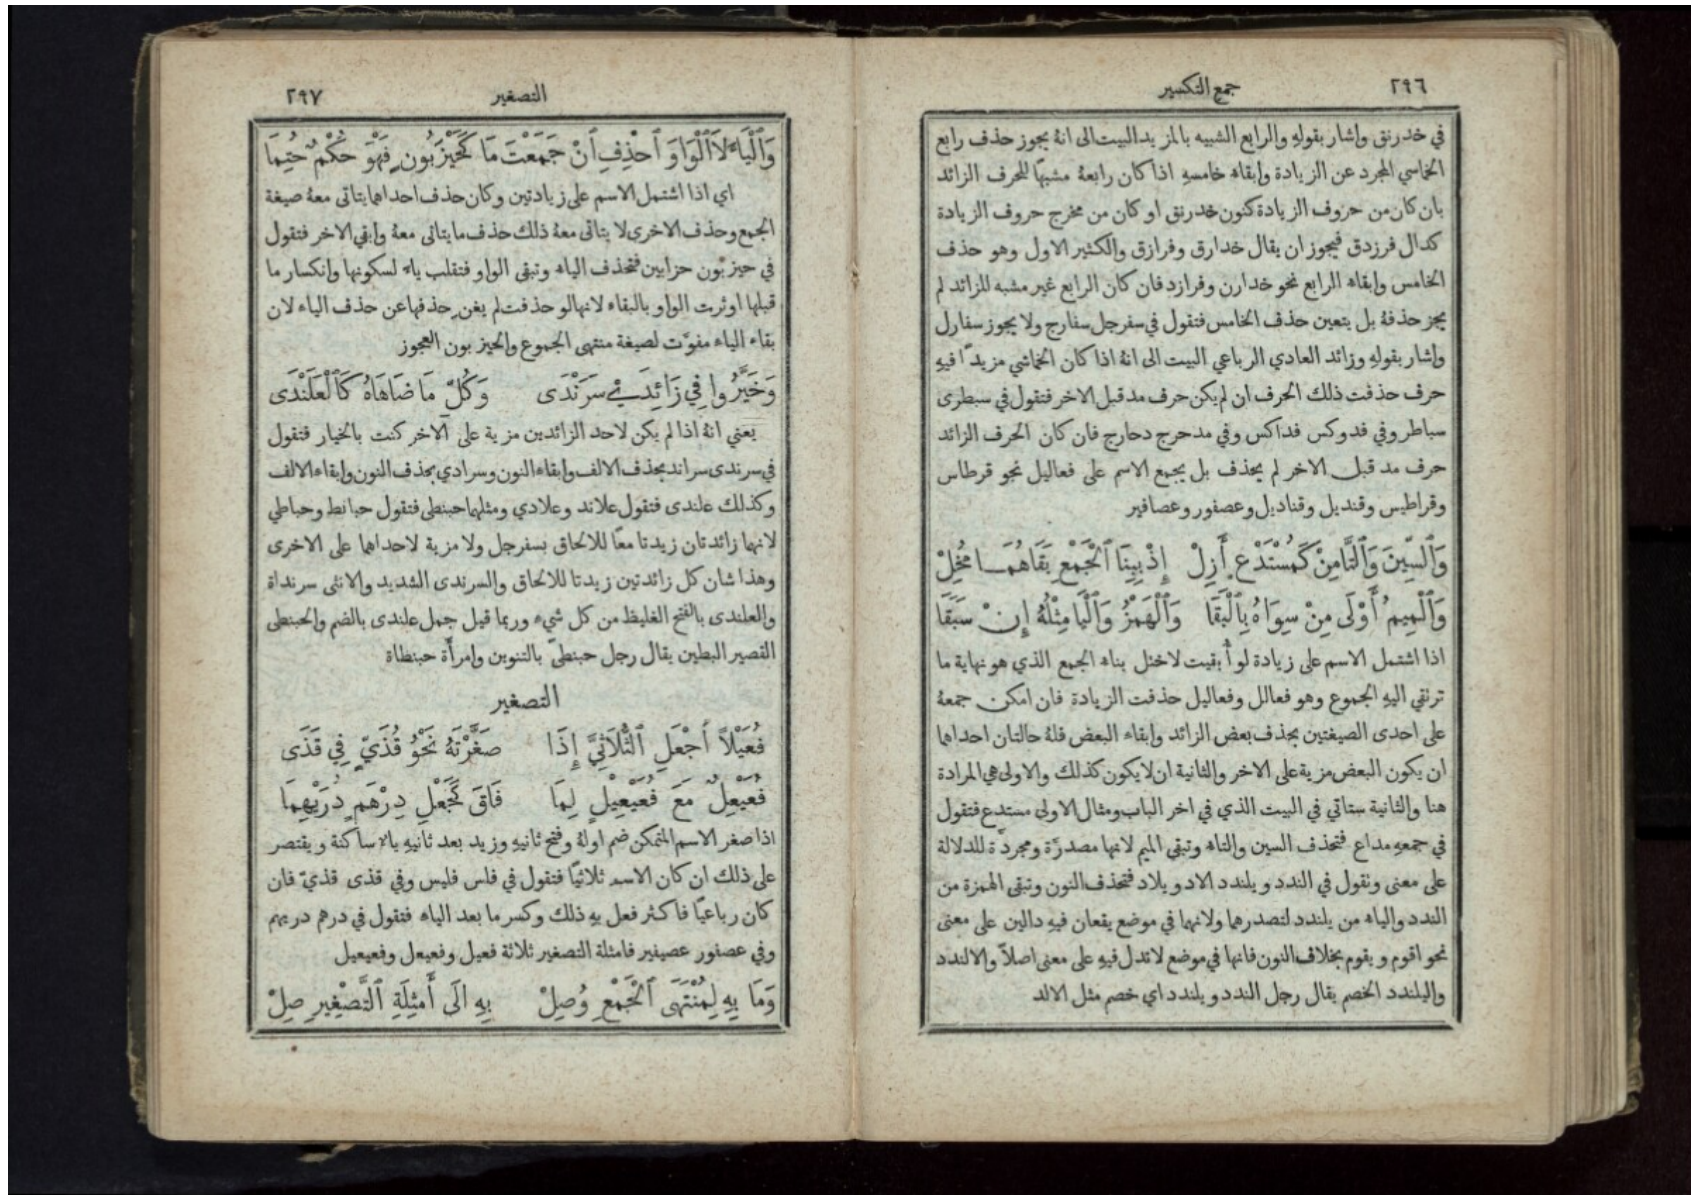 ٢٩٦ جمع التكسير
في خدرنق واشار بقولهِ والرابع الشبيه بالمزيد البيت الى انهُ يجوز حذف رابع
الخماسي المجرد عن الزيادة وابقاء خامسهِ اذا كان رابعهُ مشبهًا للحرف الزائد
بان كان من حروف الزيادة كنون خدرنق او كان من مخرج حروف الزيادة
كدال فرزدق فيجوز ان يقال خدارق وفرازق والكثير الاول وهو حذف
الخامس وابقاء الرابع نحو خدارن وفرازد فان كان الرابع غير مشبه للزائد لم
يجز حذفهُ بل يتعين حذف الخامس فتقول في سفرجل سفارج ولا يجوز سفارل
واشار بقولهِ وزائد العادي الرباعي البيت الى انهُ اذا كان الخماسي مزيدًا فيهِ
حرف حذفت ذلك الحرف ان لم يكن حرف مد قبل الاخر فتقول في سبطرى
سباطر وفي فدوكس فداكس وفي مدحرج دحارج فان كان الحرف الزائد
حرف مد قبل الاخر لم يحذف بل يجمع الاسم على فعاليل نحو قرطاس
وقراطيس وقنديل وقناديل وعصفور وعصافير
وَٱلسِّينَ وَٱلتَّا مِنْ كَمُسْتَدْعٍ أَزِلْ إِذْ بِبِنَا ٱلْجَمْعِ بَقَاهُمَا مُخِلْ
وَٱلْمِيمُ أَوْلَى مِنْ سِوَاهُ بِٱلْبَقَا وَٱلْهَمْزُ وَٱلْيَا مِثْلُهُ إِنْ سَبَقَا
اذا اشتمل الاسم على زيادة لو أُبقيت لاختل بناء الجمع الذي هو نهاية ما
ترتقي اليهِ الجموع وهو فعالل وفعاليل حذفت الزيادة فان امكن جمعهُ
على احدى الصيغتين بحذف بعض الزائد وابقاء البعض فلهُ حالتان احداهما
ان يكون البعض مزية على الاخر والثانية ان لا يكون كذلك والاولى هي المرادة
هنا والثانية ستاتي في البيت الذي في اخر الباب ومثال الاولى مستدعٍ فتقول
في جمعهِ مداع فتحذف السين والتاء وتبقي الميم لانها مصدرَّة ومجردة للدلالة
على معنى ونقول في الندد ويلندد الاد ويلاد فتحذف النون وتبقى الهمزة من
الندد والياء من يلندد لتصدرهما ولانهما في موضع يقعان فيهِ دالين على معنى
نحو اقوم ويقوم بخلاف النون فانها في موضع لا تدل فيهِ على معنى اصلاً والالندد
واليلندد الخصم يقال رجل الندد ويلندد اي خصم مثل الالد
التصغير ٢٩٧
وَٱلْيَاءَ لَا ٱلْوَاوَ ٱحْذِفِ ٱنْ جَمَعْتَ مَا كَحَيْزَبُونٍ فَهْوَ حُكْمٌ حُتِمَا
اي اذا اشتمل الاسم على زيادتين وكان حذف احداهما يتاتى معهُ صيغة
الجمع وحذف الاخرى لا يتاتى معهُ ذلك حذف ما يتاتى معهُ وابقي الاخر فتقول
في حيزبون حزابين فتحذف الياء وتبقى الواو فتقلب ياء لسكونها وانكسار ما
قبلها اوثرت الواو بالبقاء لانها لو حذفت لم يغنِ حذفها عن حذف الياء لان
بقاء الياء مفوّت لصيغة منتهى الجموع والحيزبون العجوز
وَخَيَّرُوا فِي زَائِدَيْ سَرَنْدَى وَكُلِّ مَا ضَاهَاهُ كَٱلْعَلَنْدَى
يعني انهُ اذا لم يكن لاحد الزائدين مزية على الآخر كنت بالخيار فتقول
في سرندى سراند بحذف الالف وابقاء النون وسرادي بحذف النون وابقاء الالف
وكذلك علندى فتقول علاند وعلادي ومثلهما حبنطى فتقول حبانط وحباطي
لانهما زائدتان زيدتا معًا للالحاق بسفرجل ولا مزية لاحداهما على الاخرى
وهذا شان كل زائدتين زيدتا للالحاق والسرندى الشديد والانثى سرنداة
والعلندى بالفتح الغليظ من كل شيء وربما قيل جمل علندى بالضم والحبنطى
القصير البطين يقال رجل حبنطىً بالتنوين وامرأَة حبنطاة
التصغير
فُعَيْلاً ٱجْعَلِ ٱلثُّلَاثِيَّ إِذَا صَغَّرْتَهُ نَحْوُ قُذَيٍّ فِي قَذَى
فُعَيْعِلٌ مَعَ فُعَيْعِيلٍ لِمَا فَاقَ كَجَعْلِ دِرْهَمٍ دُرَيْهِمَا
اذا صغر الاسم المتمكن ضم اولهُ وفتح ثانيهِ وزيد بعد ثانيهِ ياء ساكنة ويقتصر
على ذلك ان كان الاسم ثلاثيًا فتقول في فلس فليس وفي قذى قذيّ فان
كان رباعيًا فاكثر فعل بهِ ذلك وكسر ما بعد الياء فتقول في درهم دريهم
وفي عصفور عصيفير فامثلة التصغير ثلاثة فعيل وفعيعل وفعيعيل
وَمَا بِهِ لِمُنْتَهَى ٱلْجَمْعِ وُصِلْ بِهِ الَى أَمْثِلَةِ ٱلتَّصْغِيرِ صِلْ